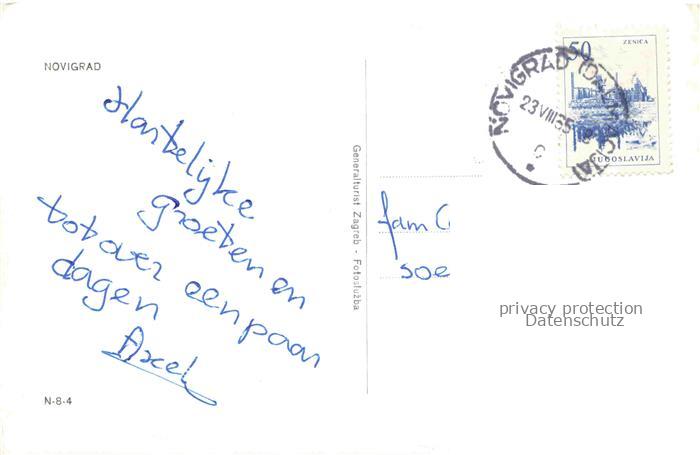 NOVIGRAD
Hartelijke
groeten en
tot over een paar
dagen
Axel
N-8-4
Generalturist Zagreb - Fotoslužba
50
ZENICA
JUGOSLAVIJA
NOVIGRAD
23 VIII 65
fam
soe
privacy protection
Datenschutz